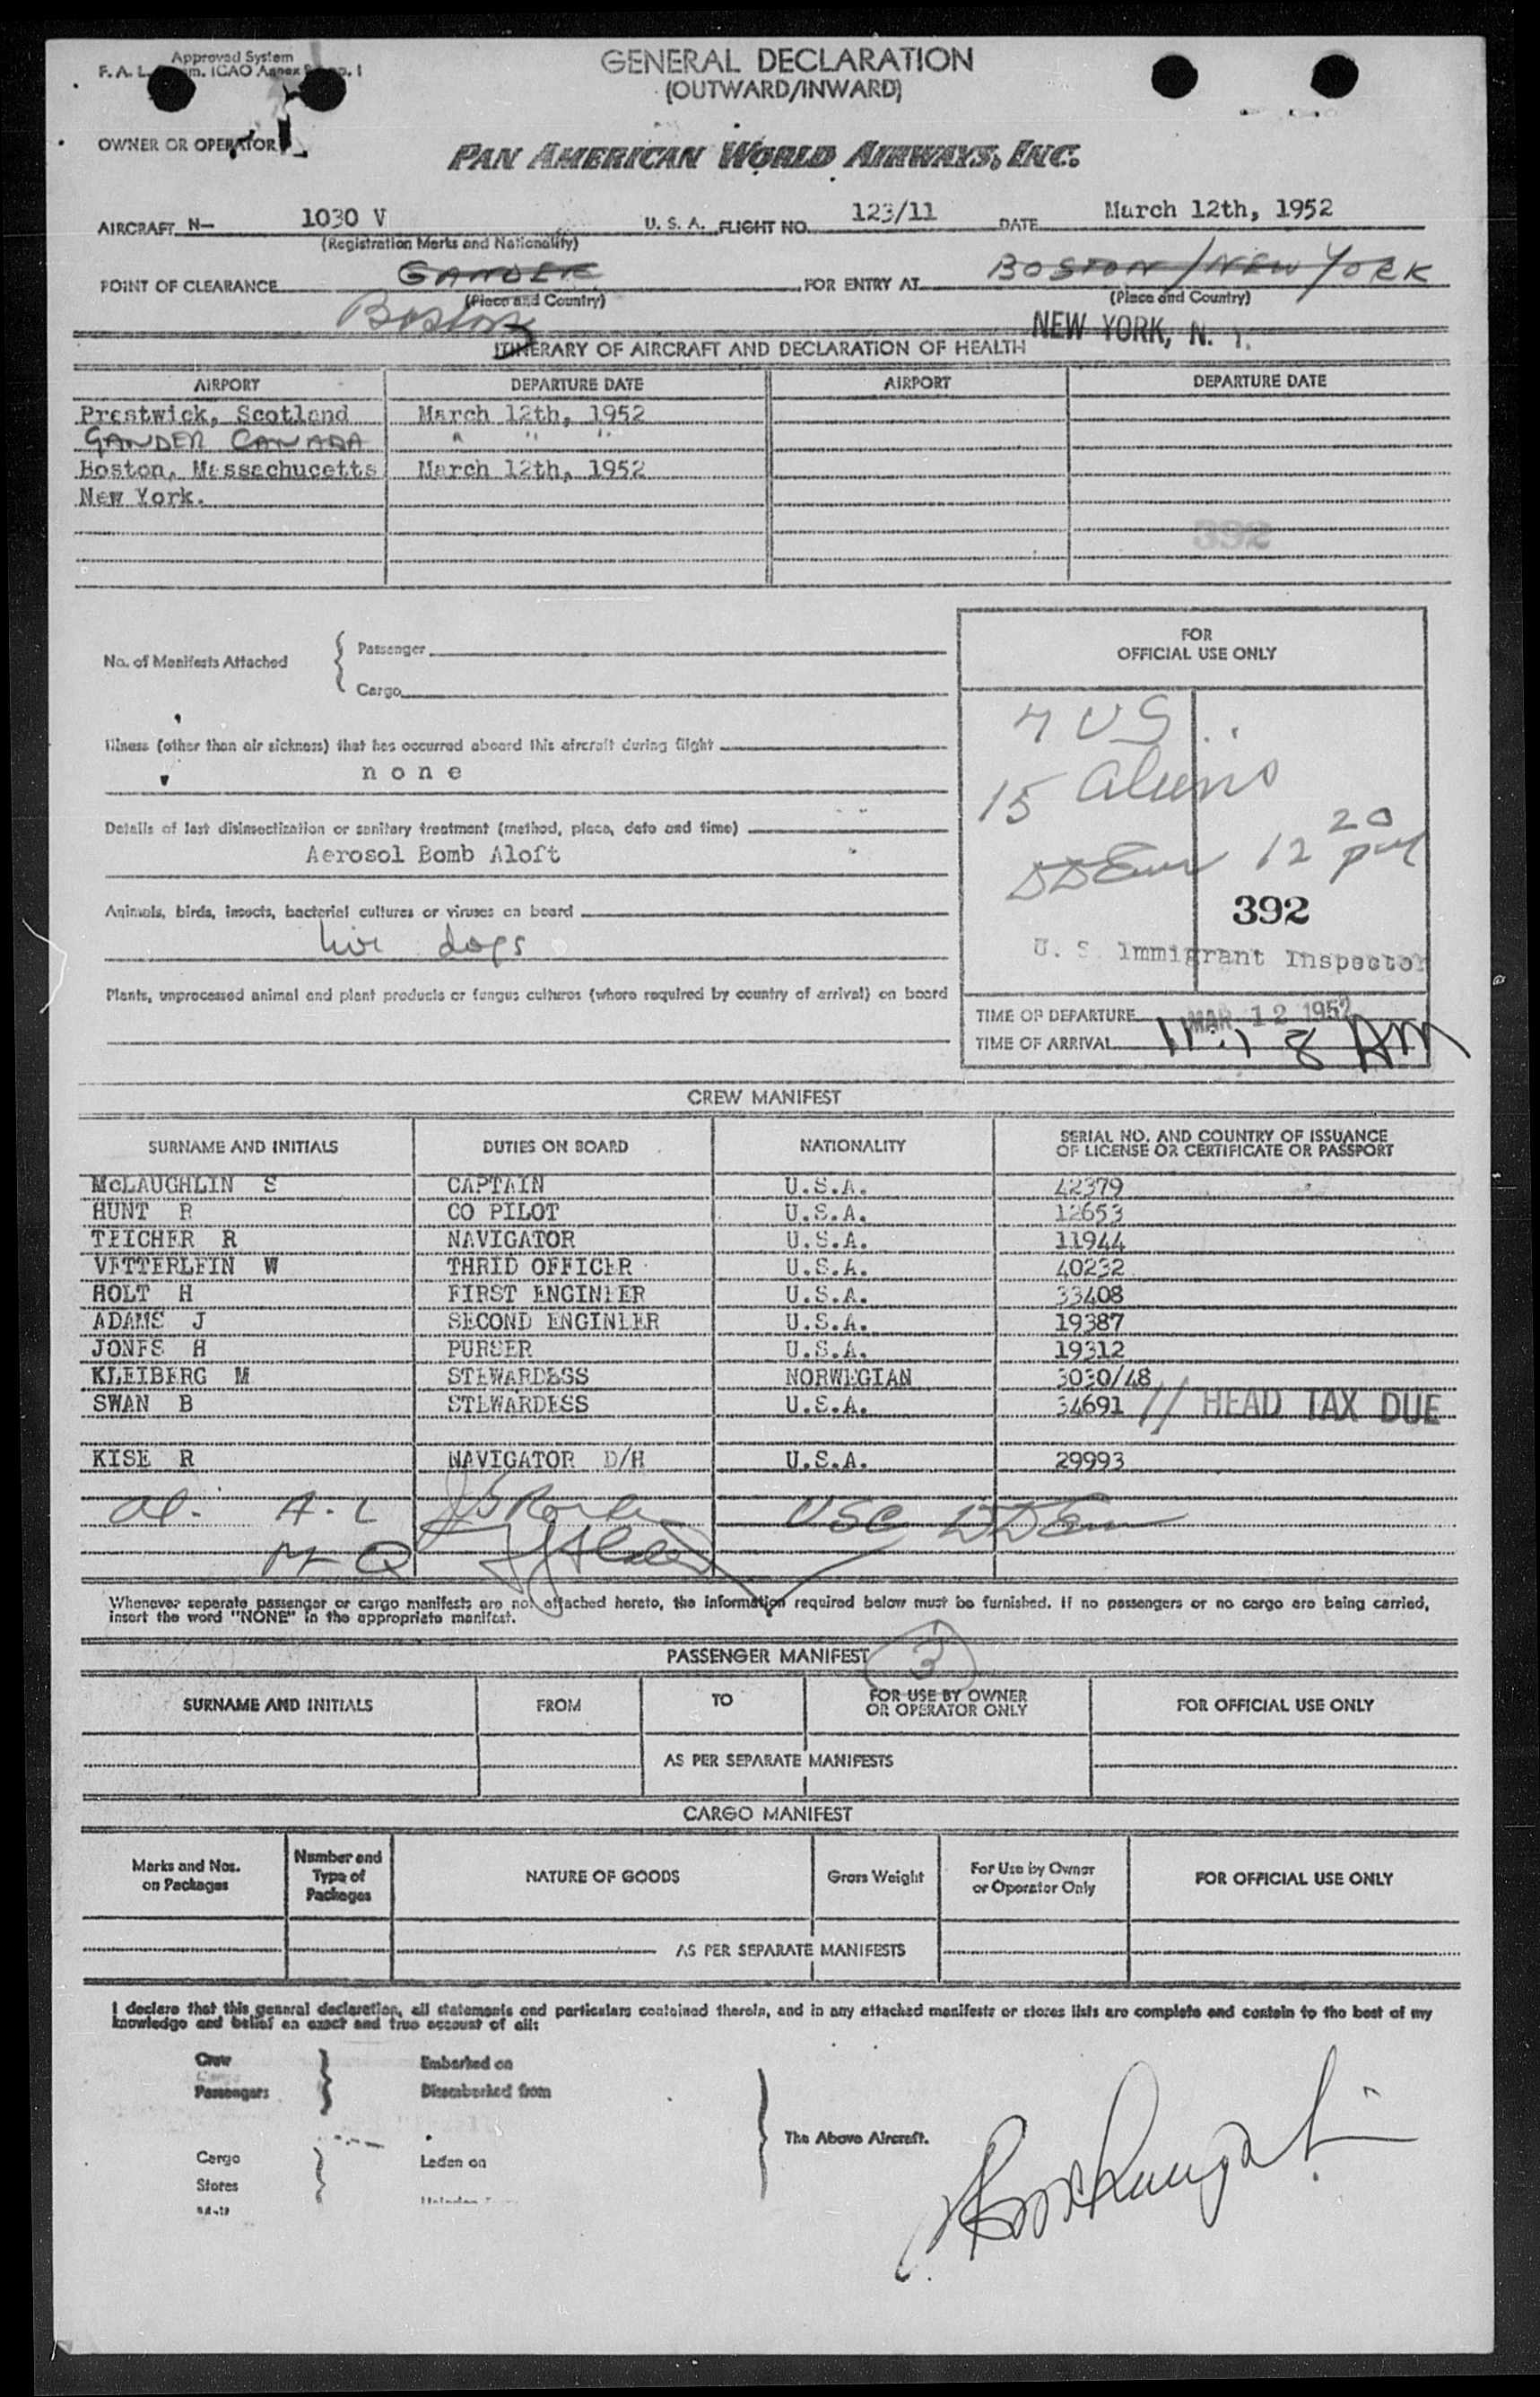 Approved System
F. A. L. m. ICAO Annex 9 App. 1
GENERAL DECLARATION
(OUTWARD/INWARD)
OWNER OR OPERATOR
PAN AMERICAN WORLD AIRWAYS, INC.
AIRCRAFT N- 1030 V U. S. A. FLIGHT NO. 123/11 DATE March 12th, 1952
(Registration Marks and Nationality)
POINT OF CLEARANCE GANDER FOR ENTRY AT BOSTON/NEW YORK
(Place and Country) (Place and Country)
Boston NEW YORK, N. Y.
ITINERARY OF AIRCRAFT AND DECLARATION OF HEALTH
AIRPORT DEPARTURE DATE AIRPORT DEPARTURE DATE
Prestwick, Scotland March 12th, 1952
GANDER CANADA " " "
Boston, Massachucetts March 12th, 1952
New York.
392
FOR
OFFICIAL USE ONLY
No. of Manifests Attached { Passenger
Cargo
7 US
15 aliens
Illness (other than air sickness) that has occurred aboard this aircraft during flight
none
Details of last disinsectization or sanitary treatment (method, place, date and time)
Aerosol Bomb Aloft
12 20 pm
392
Animals, birds, insects, bacterial cultures or viruses on board
live dogs
U. S. Immigrant Inspector
Plants, unprocessed animal and plant products or fungus cultures (where required by country of arrival) on board
TIME OF DEPARTURE MAR 12 1952
TIME OF ARRIVAL 11:18 AM
CREW MANIFEST
SURNAME AND INITIALS DUTIES ON BOARD NATIONALITY SERIAL NO. AND COUNTRY OF ISSUANCE
OF LICENSE OR CERTIFICATE OR PASSPORT
McLAUGHLIN S CAPTAIN U.S.A. 42379
HUNT R CO PILOT U.S.A. 12653
TEICHER R NAVIGATOR U.S.A. 11944
VETTERLEIN W THRID OFFICER U.S.A. 40232
HOLT H FIRST ENGINEER U.S.A. 33408
ADAMS J SECOND ENGINEER U.S.A. 19387
JONES H PURSER U.S.A. 19312
KLEIBERG M STEWARDESS NORWEGIAN 3030/48
SWAN B STEWARDESS U.S.A. 34691 // HEAD TAX DUE
KISE R NAVIGATOR D/H U.S.A. 29993
A. L USC
Q
Whenever separate passenger or cargo manifests are not attached hereto, the information required below must be furnished. If no passengers or no cargo are being carried,
insert the word "NONE" in the appropriate manifest.
PASSENGER MANIFEST 3
SURNAME AND INITIALS FROM TO FOR USE BY OWNER
OR OPERATOR ONLY FOR OFFICIAL USE ONLY
AS PER SEPARATE MANIFESTS
CARGO MANIFEST
Marks and Nos.
on Packages
Number and
Type of
Packages
NATURE OF GOODS Gross Weight For Use by Owner
or Operator Only FOR OFFICIAL USE ONLY
AS PER SEPARATE MANIFESTS
I declare that this general declaration, all statements and particulars contained therein, and in any attached manifests or stores lists are complete and contain to the best of my
knowledge and belief an exact and true account of all:
Crew Embarked on
Cargo
Passengers Disembarked from
The Above Aircraft.
Cargo Laden on
Stores